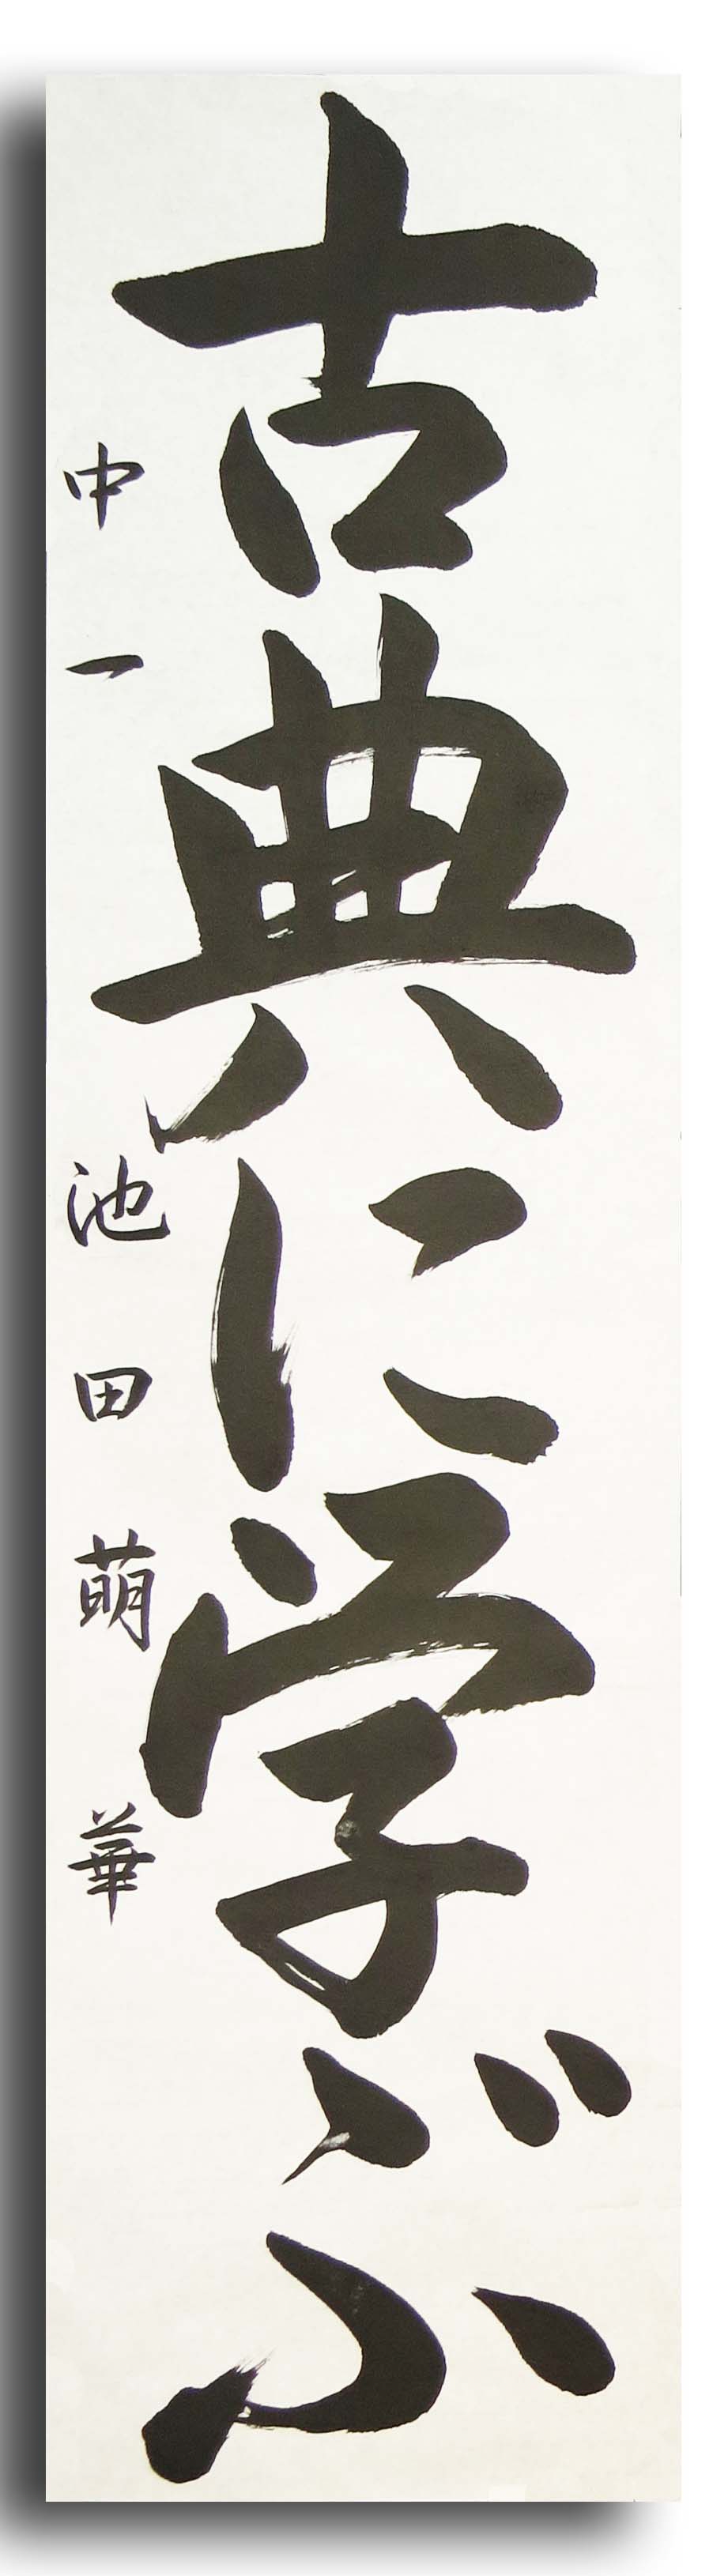 古典に学ぶ
中一 池田萌華